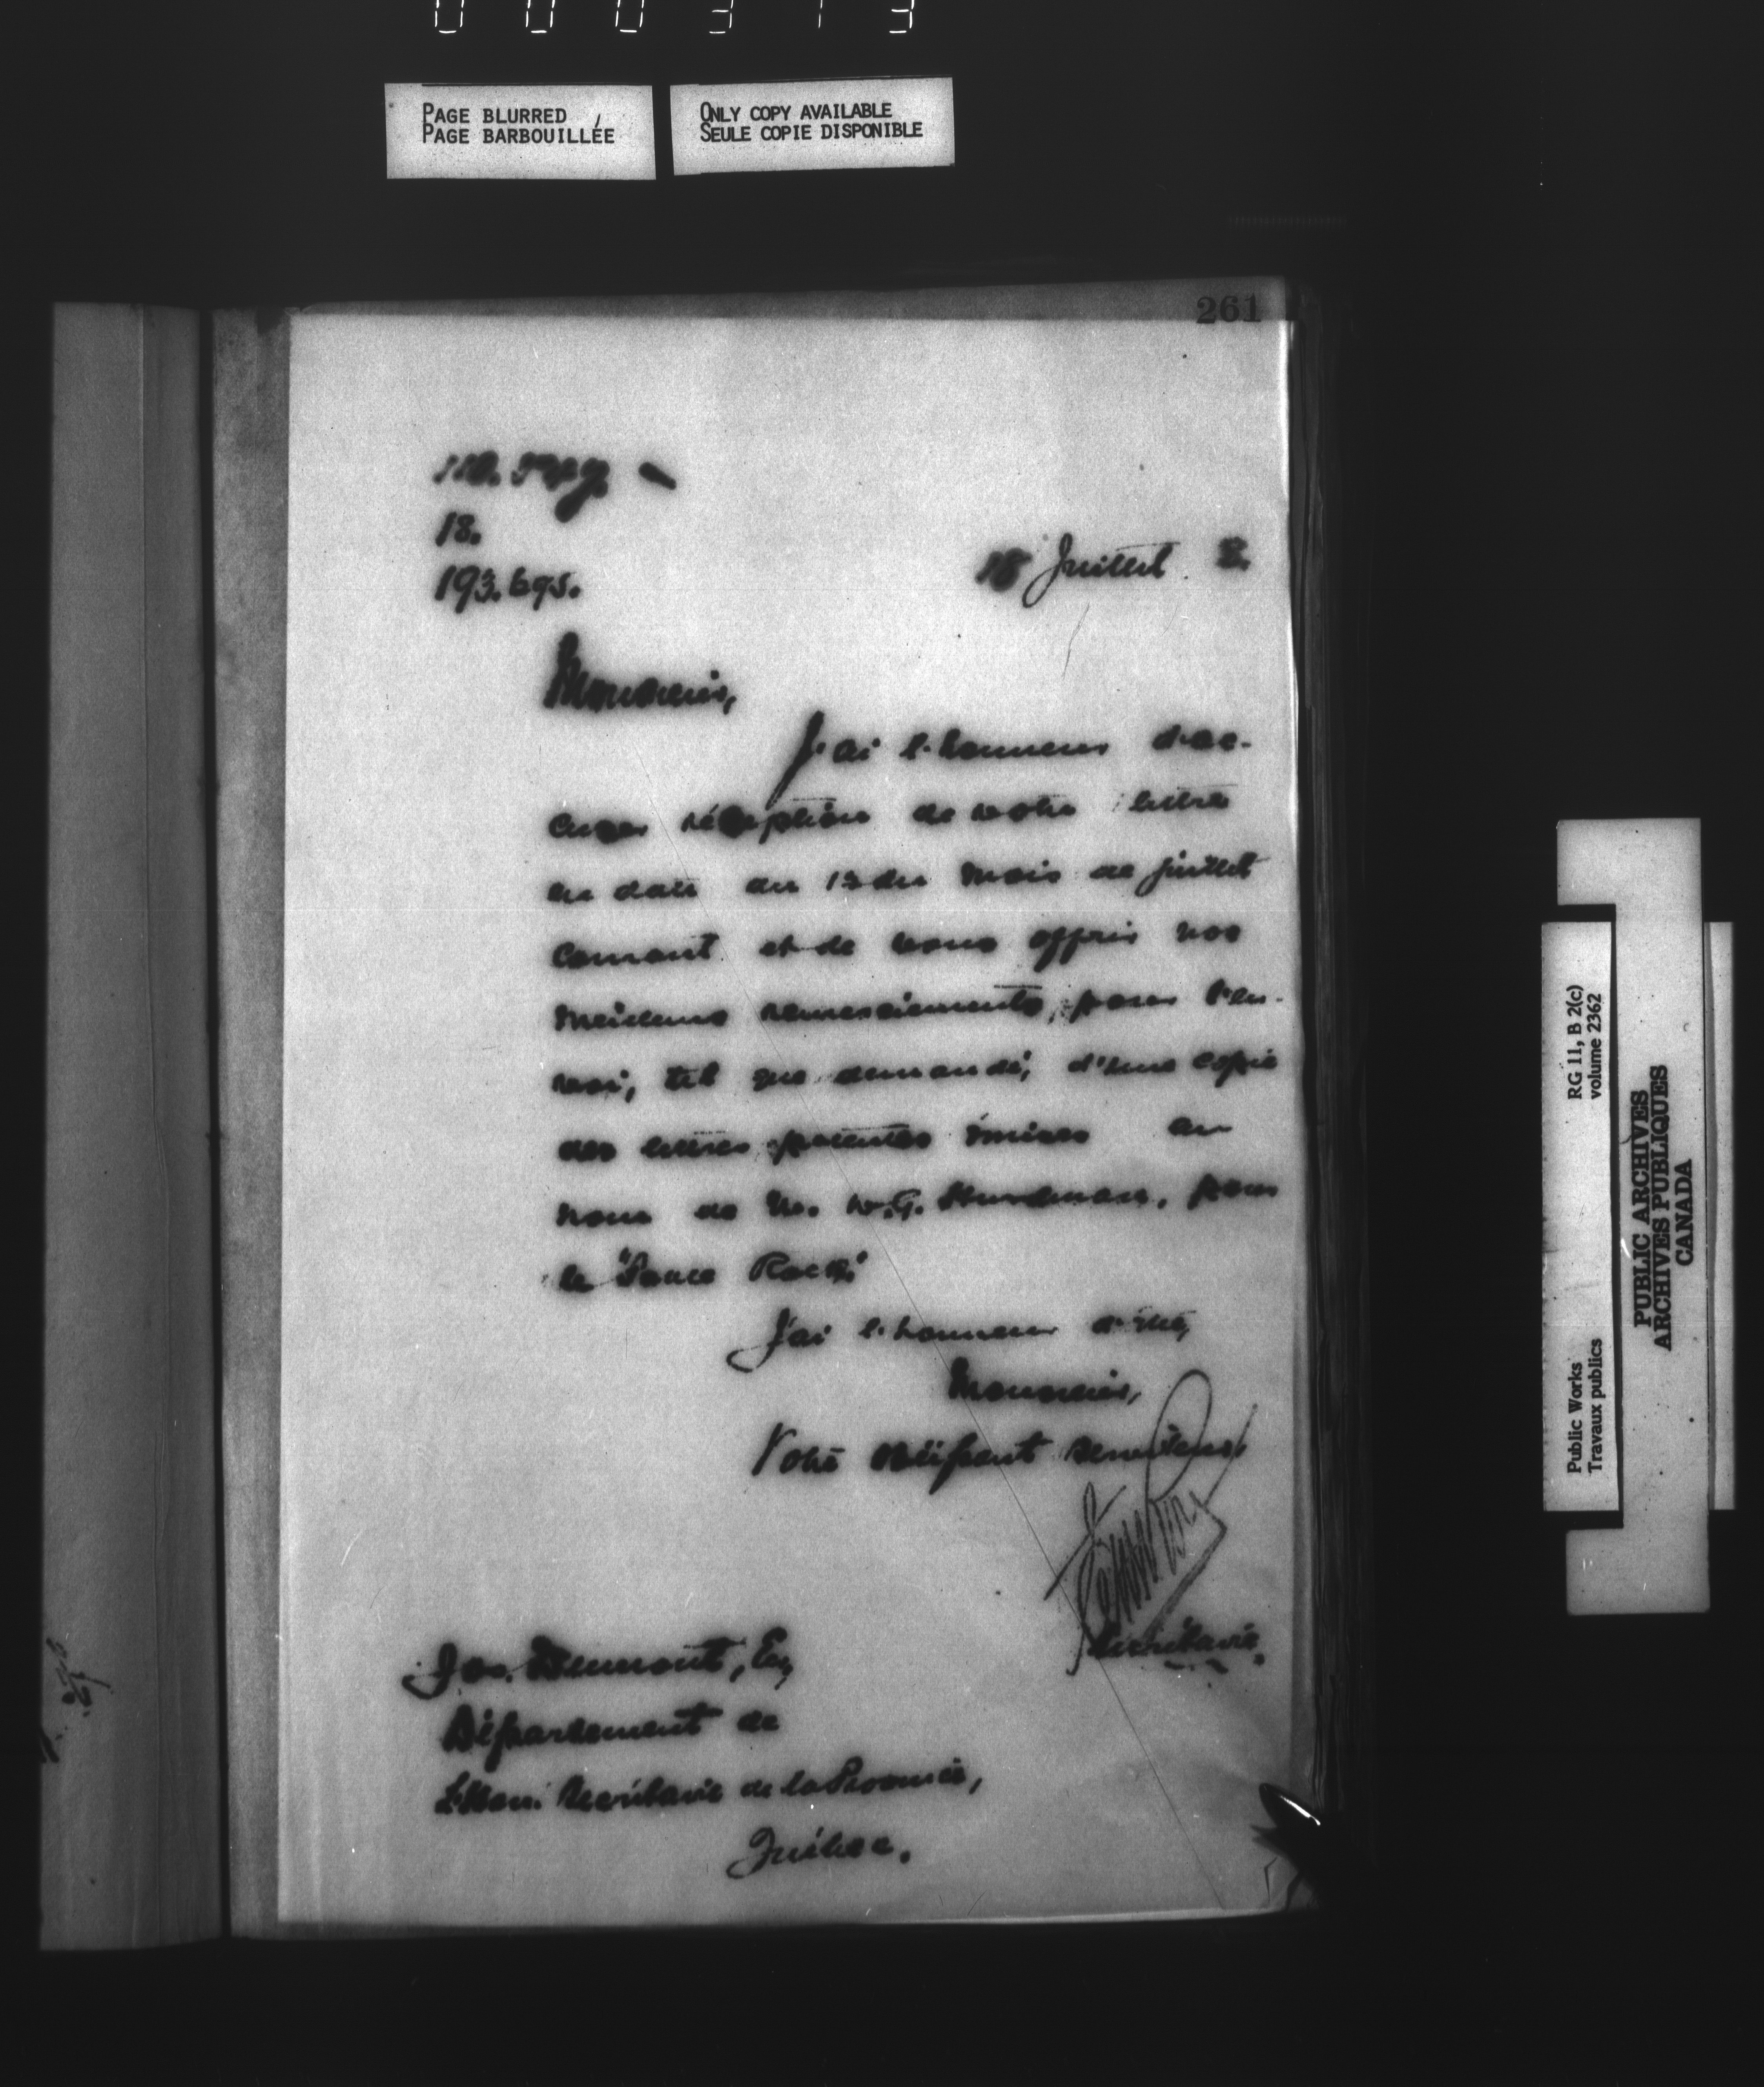 PAGE BLURRED
PAGE BARBOUILLÉE
ONLY COPY AVAILABLE
SEULE COPIE DISPONIBLE
261
18.
193.695.
18 Juillet 2.
Monsieur,
J'ai l'honneur d'ac-
cuser réception de votre lettre
en date du 13 du mois de juillet
courant et de vous offrir nos
meilleurs remerciements, pour l'en-
voi, tel que demandé, d'une copie
des lettres patentes émises au
nom de M. W.G. Hurdman, pour
le Rock."
J'ai l'honneur d'être,
Monsieur,
Votre obéissant serviteur,
Secrétaire.
Jos. Dumont, Esq
Département de
L'Hon. Secrétaire de la Province,
Québec.
RG 11, B 2(c)
volume 2362
Public Works
Travaux publics
PUBLIC ARCHIVES
ARCHIVES PUBLIQUES
CANADA